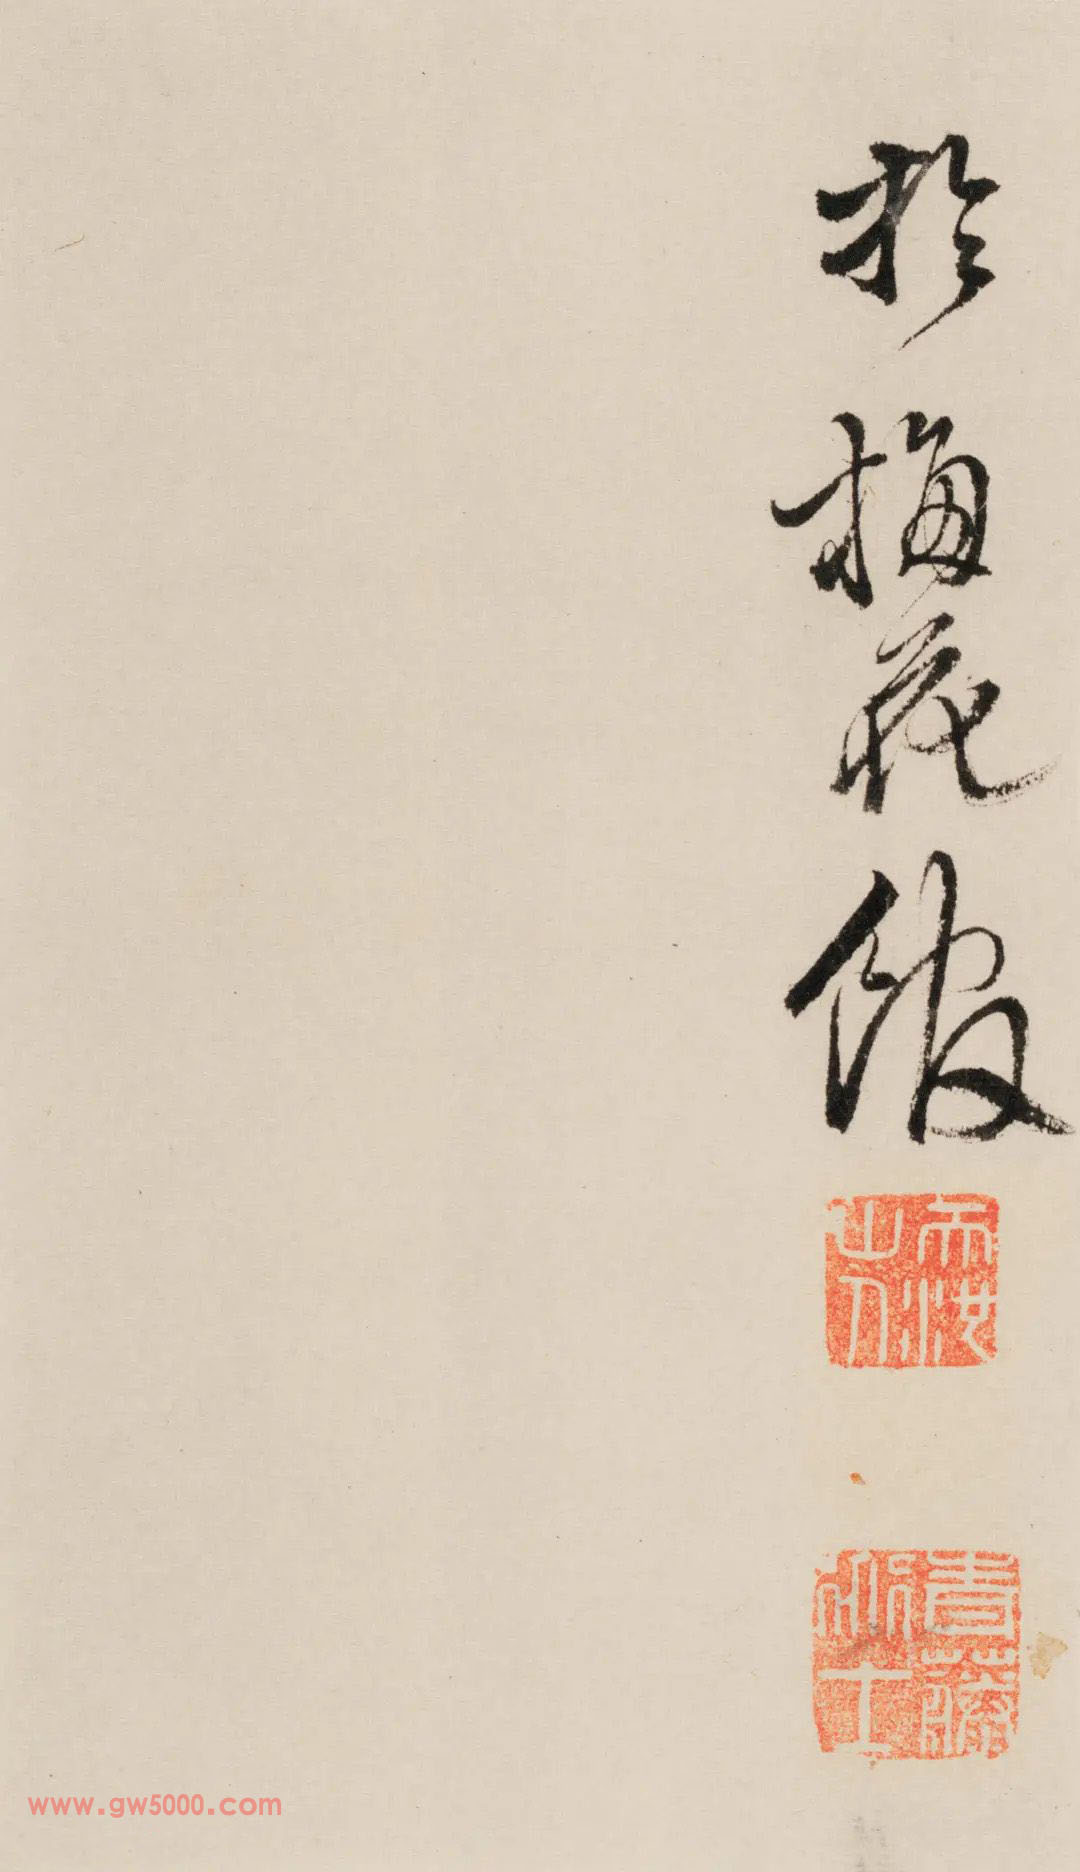 於梅花館
天池山人
青藤道士
www.gw5000.com